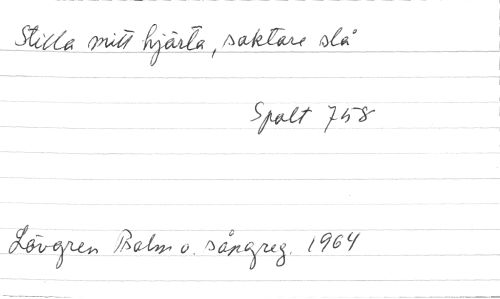 Stilla mitt hjärta, saktare slå
Spalt 758
Lövgren Psalm o. sångreg. 1964